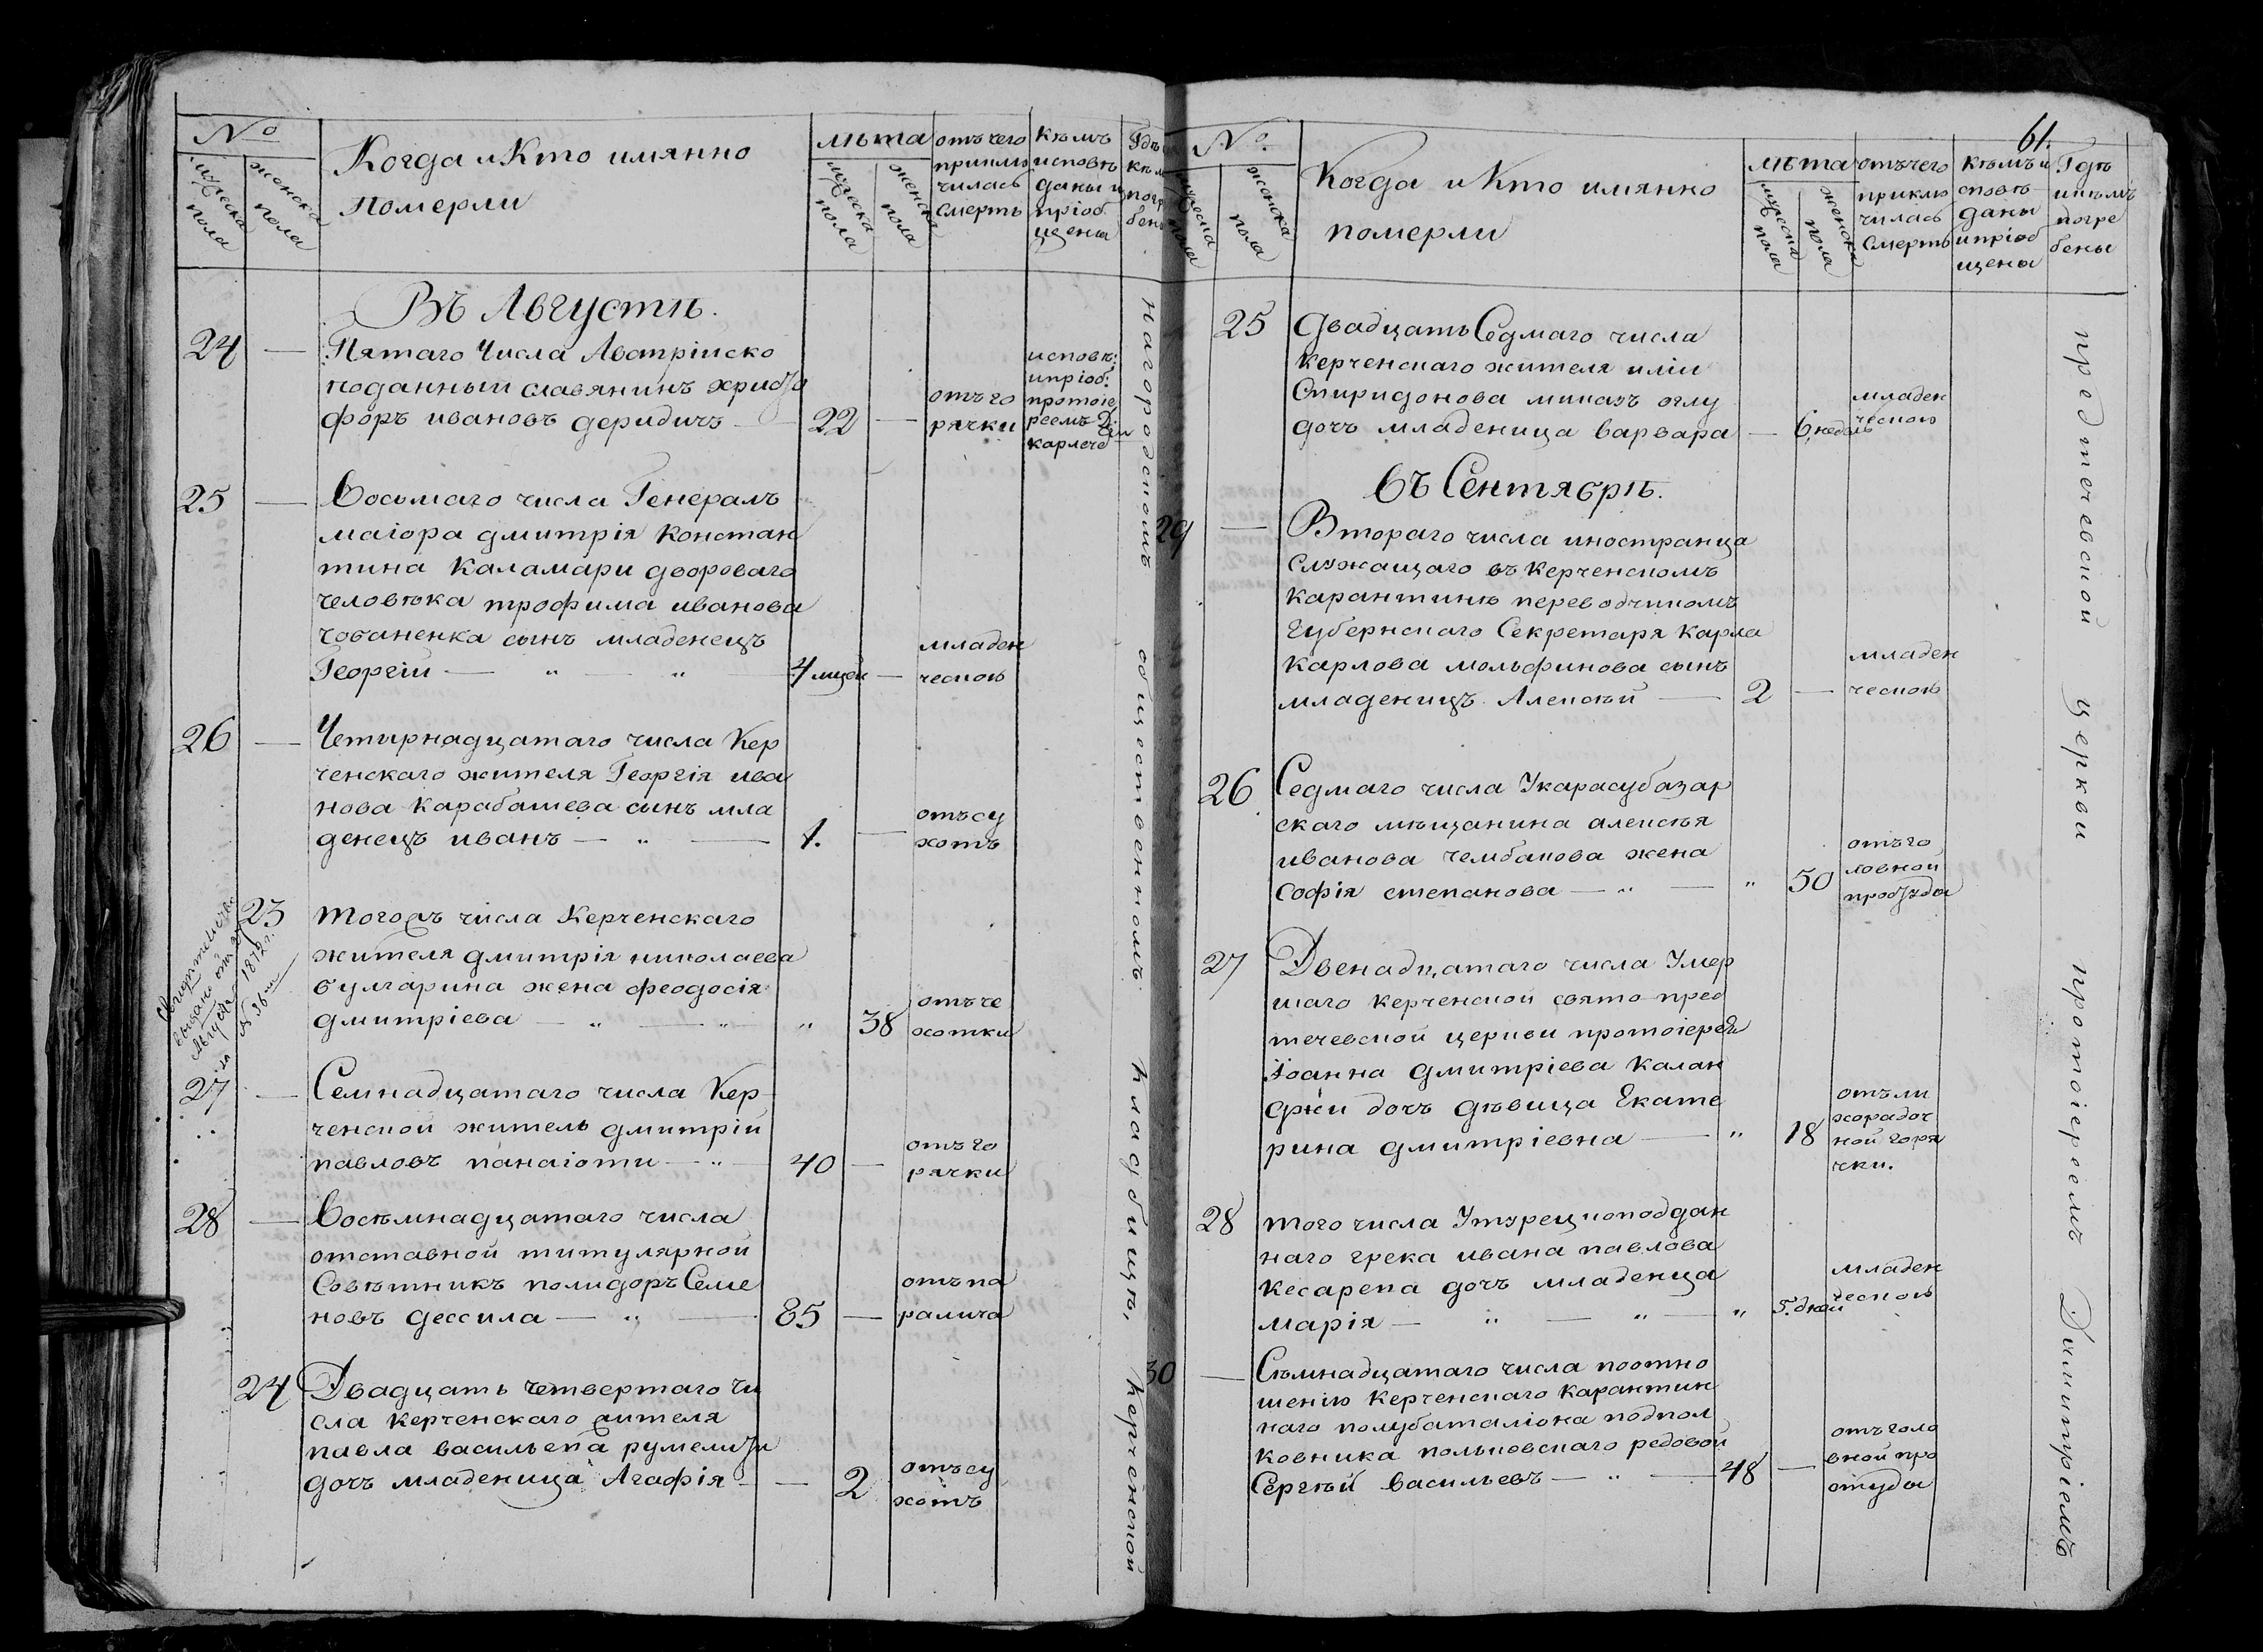 №
мужеска пола
женска пола
Когда и Кто имянно
померли
лѣта
мужеска пола
женска пола
отъ чего
приклю
чилась
смерть
кѣмъ
исповѣ
даны и
пріоб
щены
Гдѣ
кѣм
погр
бены
Въ Августѣ.
24 —
Пятаго Числа Австрійско
поданный славянинъ христо
форъ ивановъ деридичъ — 22 —
отъ го
рячки
исповѣ:
и пріоб:
протоіе
реемъ
25 —
Восьмаго числа Генералъ
маіора дмитрія констан
тина Каламари двороваго
человѣка трофима иванова
чованенка сынъ младенецъ
Георгій — " — " — 4 мцей —
младен
ческою
26 —
Четырнадцатаго числа Кер
ченскаго жителя Георгія ива
нова Карабашева сынъ мла
денецъ иванъ — " — 1. —
отъ су
хотъ
23
Тогожъ числа Керченскаго
жителя дмитрія николаева
булгарина жена феодосія
дмитріева — " — " — " 38
отъ че
хотки
Свидѣтельство
выдано отъ
Августа 1872 г.
за № 36
27 —
Семнадцатаго числа Кер
ченской житель дмитрій
павловъ панаіоти — " — 40 —
отъ го
рячки
28 —
Восѣмнадцатаго числа
отставной титулярной
Совѣтникъ полидоръ Семе
новъ дессила — " — 85 —
отъ па
ралича
24
Двадцать четвертаго чи
сла керченскаго жителя
павла васильева румелиоти
дочъ младеница Агафія — — 2
отъ су
хотъ
на городскомъ общественномъ кладбищѣ, керченской
61.
№.
мужеска пола
женска пола
Когда и Кто имянно
померли
лѣта
мужеска пола
женска пола
отъ чего
приклю
чилась
Смерть
Кѣмъ и
сповѣ
даны
и пріоб
щены
Гдѣ
и кѣмъ
погре
бены
25
Двадцать Седмаго числа
керченскаго жителя иліи
Спиридонова миназъ оглу
дочъ младеница варвара — 6 недѣль
младен
ческою
въ Сентябрѣ.
29 —
Втораго числа иностранца
служащаго въ керченскомъ
карантинѣ переводчикомъ
Губернскаго Секретаря Карла
карлова мольфинова сынъ
младеницъ Алексѣй — 2 —
младен
ческою
26
Седмаго числа У карасубазар
скаго мѣщанина алексѣя
иванова чембакова жена
Софія степанова — " — " 50
отъ го
ловной
простуды
27
Двенадцатаго числа Умер
шаго керченской свято пред
течевской церкви протоіерея
Іоанна Дмитріева Калан
джи дочъ дѣвица Екате
рина дмитріевна — " 18
отъ ли
хорадоч
ной горя
чки.
28
Того числа У турецкоподдан
наго грека ивана павлова
кесарева дочъ младенца
марія — " — " — " 5. дней
младен
ческою
30 —
Сѣмнадцатаго числа по отно
шенію керченскаго карантин
наго полубаталіона подпол
ковника польковскаго редовой
Сергѣй васильевъ — " — 48 —
отъ голо
вной про
студы
предтечевской церкви протоіереемъ Димитріемъ